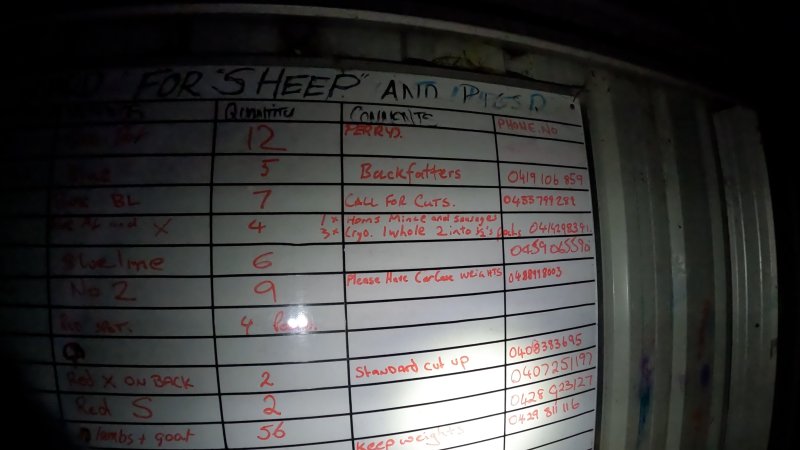 FOR "SHEEP" AND PIGS
QUANTITY COMMENTS PHONE.NO
12
5 Backfatters 0419 106 859
BL 7 CALL FOR CUTS. 0435799282
and X 4 1x Hams Mince and sausages
3x Cryo. 1 whole 2 into 1/2's
Blue line 6
No 2 9 Please Have Carcase weights 0488918003
4
Standard cut up 0408383695
Red X ON BACK 2 0407251197
Red S 2 0428 923127
lambs + goat 56 Keep weights 0429 811 116